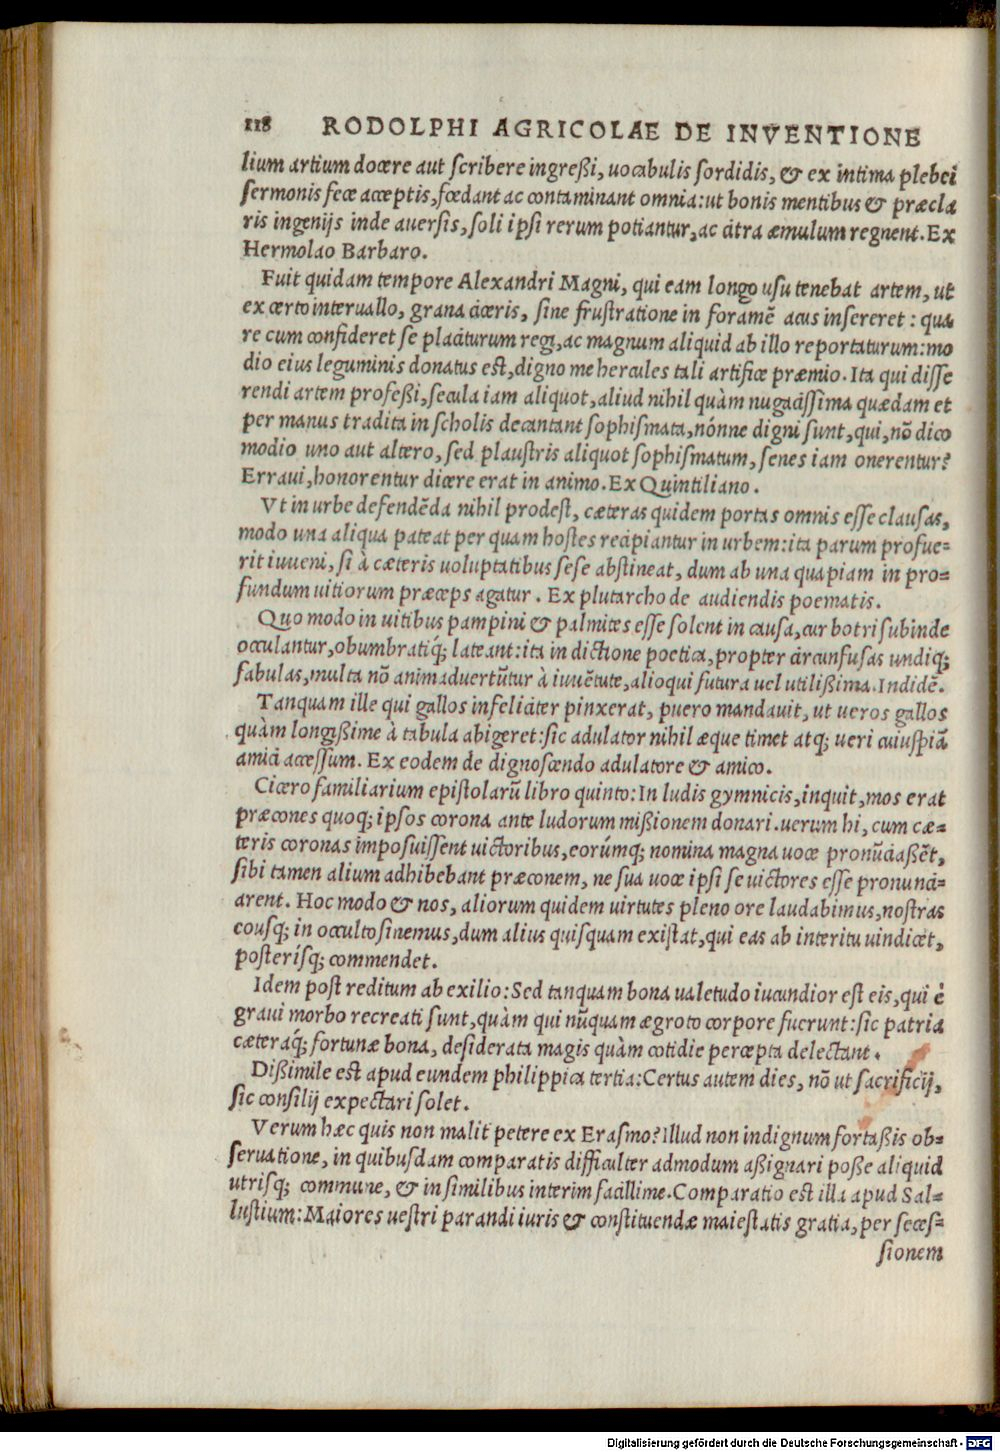 118 RODOLPHI AGRICOLAE DE INVENTIONE
lium artium docere aut scribere ingreßi, uocabulis sordidis, & ex intima plebei
sermonis fece acceptis, fœdant ac contaminant omnia: ut bonis mentibus & præcla
ris ingenijs inde auersis, soli ipsi rerum potiantur, ac citra æmulum regnent. Ex
Hermolao Barbaro.
Fuit quidam tempore Alexandri Magni, qui eam longo usu tenebat artem, ut
ex certo interuallo, grana ciceris, sine frustratione in foramē acus insereret: qua
re cum confideret se placiturum regi, ac magnum aliquid ab illo reportaturum: mo
dio eius leguminis donatus est, digno me hercules tali artifice præmio. Ita qui disse
rendi artem profeßi, secula iam aliquot, aliud nihil quàm nugacissima quædam et
per manus tradita in scholis decantant sophismata, nónne digni sunt, qui, nō dico
modio uno aut altero, sed plaustris aliquot sophismatum, senes iam onerentur?
Erraui, honorentur dicere erat in animo. Ex Quintiliano.
Vt in urbe defendēda nihil prodest, cæteras quidem portas omnis esse clausas,
modo una aliqua pateat per quam hostes recipiantur in urbem: ita parum profue=
rit iuueni, si à cæteris uoluptatibus sese abstineat, dum ab una quapiam in pro=
fundum uitiorum præceps agatur. Ex plutarcho de audiendis poematis.
Quo modo in uitibus pampini & palmites esse solent in causa, cur botri subinde
occulantur, obumbratiq́; lateant: ita in dictione poetica, propter circunfusas undiq;
fabulas, multa nō animaduertūtur à iuuētute, alioqui futura uel utilißima. Indidē.
Tanquam ille qui gallos infeliciter pinxerat, puero mandauit, ut ueros gallos
quàm longißime à tabula abigeret: sic adulator nihil æque timet atq; ueri cuiuspiā
amici accessum. Ex eodem de dignoscendo adulatore & amico.
Cicero familiarium epistolarū libro quinto: In ludis gymnicis, inquit, mos erat
præcones quoq; ipsos corona ante ludorum mißionem donari. uerum hi, cum cæ=
teris coronas imposuissent uictoribus, eorúmq; nomina magna uoce pronūciaßēt,
sibi tamen alium adhibebant præconem, ne sua uoce ipsi se uictores esse pronunci=
arent. Hoc modo & nos, aliorum quidem uirtutes pleno ore laudabimus, nostras
eousq; in occulto sinemus, dum alius quisquam existat, qui eas ab interitu uindicet,
posterísq; commendet.
Idem post reditum ab exilio: Sed tanquam bona ualetudo iucundior est eis, qui è
graui morbo recreati sunt, quàm qui nūquam ægroto corpore fuerunt: sic patria
cæteraq́; fortunæ bona, desiderata magis quàm cotidie percepta delectant.
Dißimile est apud eundem philippica tertia: Certus autem dies, nō ut sacrificij,
sic consilij expectari solet.
Verum hæc quis non malit petere ex Erasmo? Illud non indignum fortaßis ob=
seruatione, in quibusdam comparatis difficulter admodum aßignari poße aliquid
utrisq; commune, & in similibus interim facillime. Comparatio est illa apud Sal=
lustium: Maiores uestri parandi iuris & constituendæ maiestatis gratia, per seces=
sionem
Digitalisierung gefördert durch die Deutsche Forschungsgemeinschaft - DFG